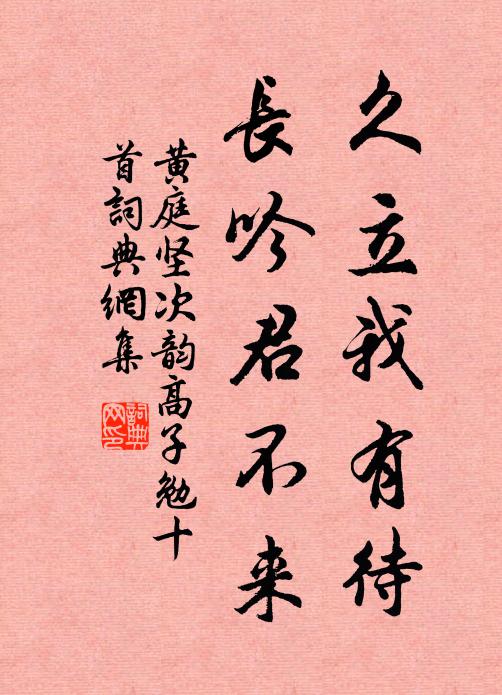 久立我有待
長吟君不来
黄庭坚次韵高子勉十
首詞典網集
詞典网印